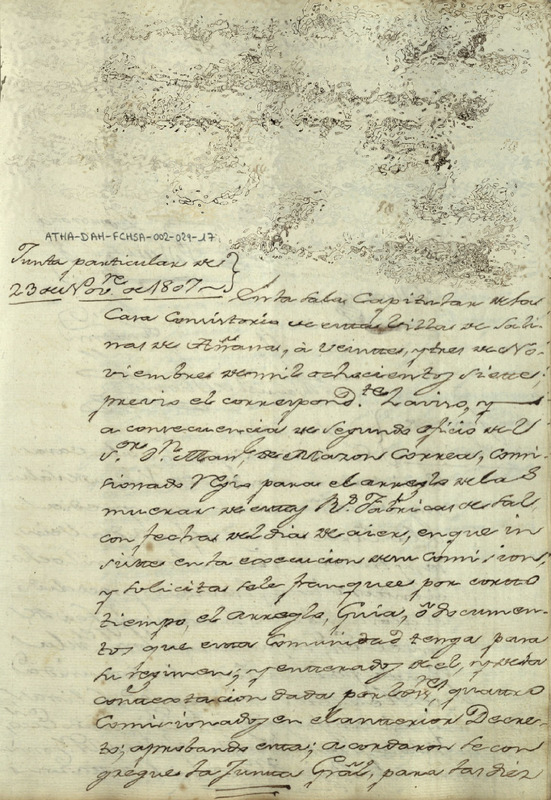 ATHA-DAH-FCHSA-002-029-17
Junta particular de
23 de Nov.re de 1807
En la Sala Capitular de la
Casa Consistorio de esta Villa de Sali
nas de Añana, à veinte, y tres de No-
viembre de mil ochocientos siete;
previo el correspond.te aviso, y
a consecuencia de segundo oficio de
S.or D.n Man.l de Mazon Correa, Comi-
sionado Regio para el arreglo de las
mueras de estas R.s Fabricas de Sal
con fecha del dia de aier, en que in
siste en la execucion de su Comision,
y solicita se le franquee por corto
tiempo, el arreglo, Guia, ô documen-
tos que esta Comunidad tenga para
su regimen; y enterados de el, y de la
contextacion dada por los quatro
Comisionados en el anterior Decre-
to; aprobando esta; acordaron se con
gregue la Junta Gral, para las diez